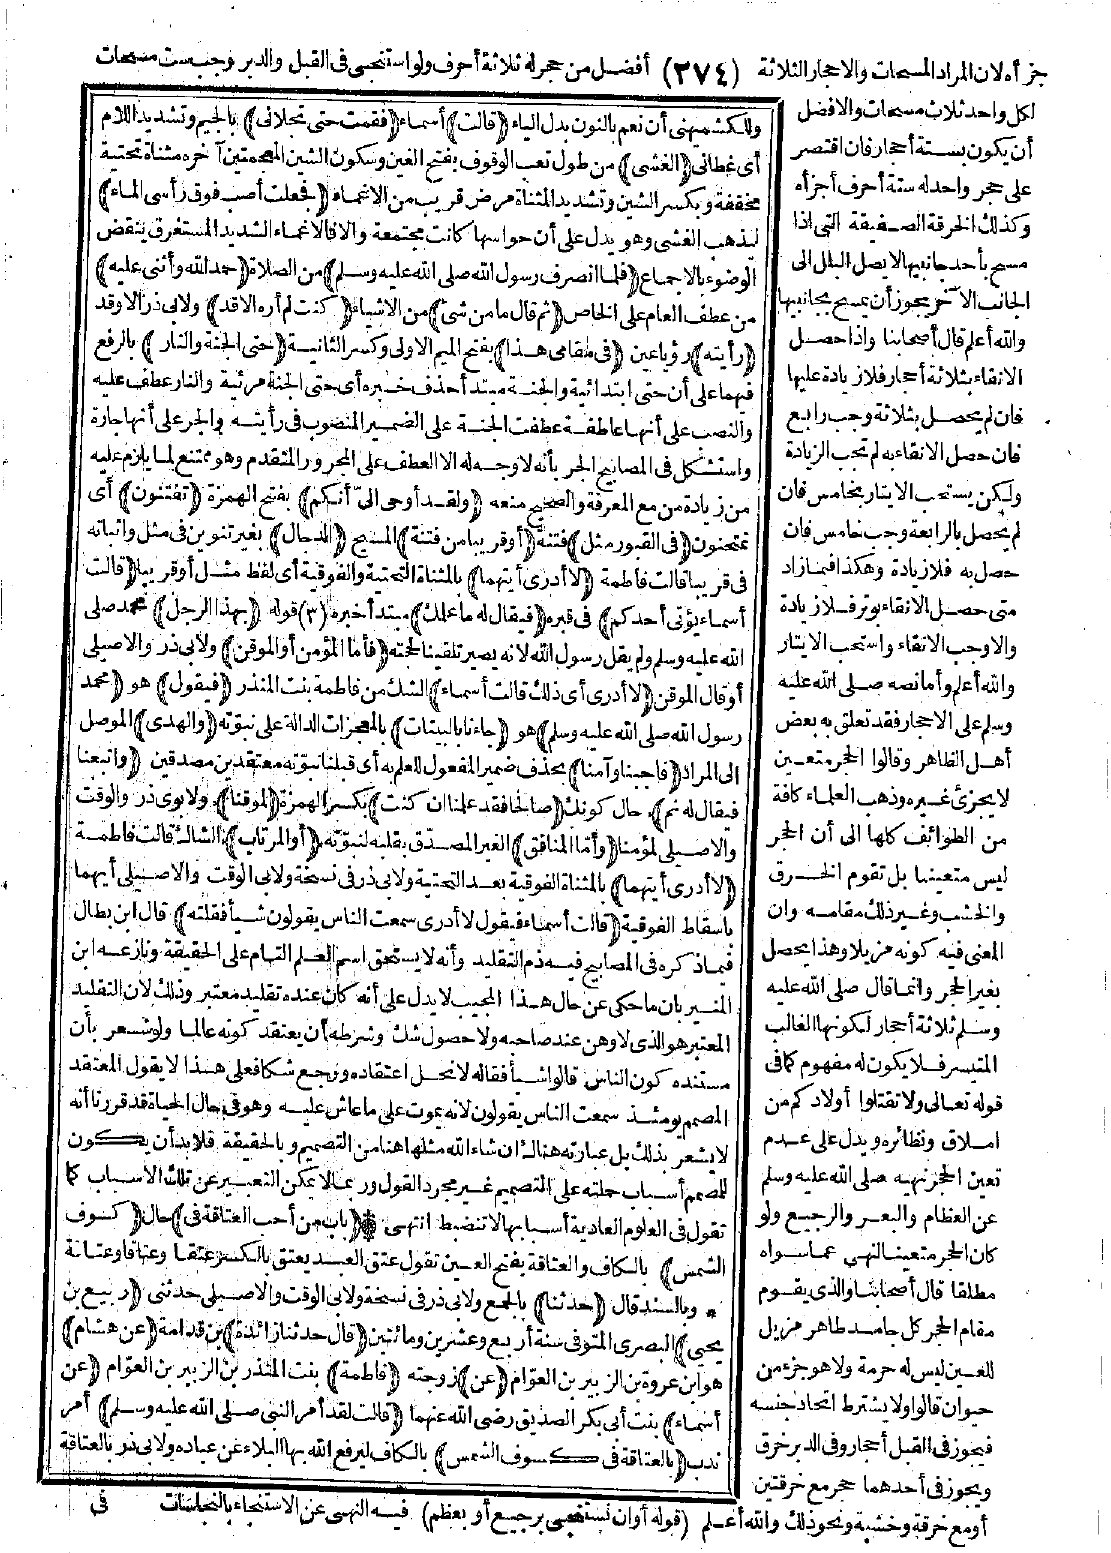 جزأه لان المراد المسحات والاحجار الثلاثة (٣٧٤) أفضل من حجر له ثلاثة أحرف ولو استنجى فى القبل والدبر وجب ست مسحات
لكل واحد ثلاث مسحات والافضل
أن يكون بستة أحجار فان اقتصر
على حجر واحد له ستة أحرف أجزأه
وكذلك الخرقة الصفيقة التى اذا
مسح بأحد جانبيها لا يصل البلل الى
الجانب الآخر يجوز أن يمسح بجانبيها
والله أعلم قال أصحابنا واذا حصل
الانقاء بثلاثة أحجار فلا زيادة عليها
فان لم يحصل بثلاثة وجب رابع
فان حصل الانقاء به لم تجب الزيادة
ولكن يستحب الايتار بخامس فان
لم يحصل بالرابعة وجب خامس فان
حصل به فلا زيادة وهكذا فيما زاد
متى حصل الانقاء بوتر فلا زيادة
والاوجب الانقاء واستحب الايتار
والله أعلم وأما نصه صلى الله عليه
وسلم على الاحجار فقد تعلق به بعض
أهل الظاهر وقالوا الحجر متعين
لا يجزئ غيره وذهب العلماء كافة
من الطوائف كلها الى أن الحجر
ليس متعينا بل تقوم الخرق
والخشب وغير ذلك مقامه وان
المعنى فيه كونه مزيلا وهذا يحصل
بغير الحجر وانما قال صلى الله عليه
وسلم ثلاثة أحجار لكونها الغالب
المتيسر فلا يكون له مفهوم كما فى
قوله تعالى ولا تقتلوا أولادكم من
املاق ونظائره ويدل على عدم
تعين الحجر نهيه صلى الله عليه وسلم
عن العظام والبعر والرجيع ولو
كان الحجر متعينا لنهى عما سواه
مطلقا قال أصحابنا والذى يقوم
مقام الحجر كل جامد طاهر مزيل
للعين ليس له حرمة ولا هو جزء من
حيوان قالوا ولا يشترط اتحاد جنسه
فيجوز فى القبل أحجار وفى الدبر خرق
ويجوز فى أحدهما حجر مع خرقتين
أو مع خرقة وخشبة ونحو ذلك والله أعلم (قوله أوان نستنجى برجيع أو بعظم) فيه النهى عن الاستنجاء بالنجاسات فى
وللكشميهنى أن نعم بالنون بدل الياء ((قالت)) أسماء ((فقمت حتى تجلانى)) بالجيم وتشديد اللام
أى غطانى ((الغشى)) من طول تعب الوقوف بفتح الغين وسكون الشين المعجمتين آخره مثناة تحتية
مخففة وبكسر الشين وتشديد المثناة مرض قريب من الاغماء ((فجعلت أصب فوق رأسى الماء))
ليذهب الغشى وهو يدل على أن حواسها كانت مجتمعة والا فالاغماء الشديد المستغرق ينقض
الوضوء بالاجماع ((فلما انصرف رسول الله صلى الله عليه وسلم)) من الصلاة ((حمد الله وأثنى عليه))
من عطف العام على الخاص ((ثم قال ما من شئ)) من الاشياء ((كنت لم أره الا قد)) ولابى ذر الا وقد
((رأيته)) رؤيا عين ((فى مقامى هذا)) بفتح الميم الاولى وكسر الثانية ((حتى الجنة والنار)) بالرفع
فيهما على أن حتى ابتدائية والجنة مبتدأ حذف خبره أى حتى الجنة مرئية والنار عطف عليه
والنصب على أنها عاطفة عطفت الجنة على الضمير المنصوب فى رأيته والجر على أنها جارة
واستشكل فى المصابيح الجر بأنه لا وجه له الا العطف على المجرور المتقدم وهو ممتنع لما يلزم عليه
من زيادة من مع المعرفة والصحيح منعه ((ولقد أوحى الىّ أنكم)) بفتح الهمزة ((تفتنون)) أى
تمتحنون ((فى القبور مثل)) فتنة ((أو قريبا من فتنة)) المسيح ((الدجال)) بغير تنوين فى مثل واثباته
فى قريبا قالت فاطمة ((لا أدرى أيتهما)) بالمثناة التحتية والفوقية أى لفظ مثل أو قريبا ((قالت
أسماء يؤتى أحدكم)) فى قبره ((فيقال له ما علمك)) مبتدأ خبره (٣) قوله ((بهذا الرجل)) محمد صلى
الله عليه وسلم ولم يقل رسول الله لانه يصير تلقينا لحجته ((فأما المؤمن أو الموقن)) ولابى ذر والاصيلى
أو قال الموقن ((لا أدرى أى ذلك قالت أسماء)) الشك من فاطمة بنت المنذر ((فيقول)) هو ((محمد
رسول الله صلى الله عليه وسلم)) هو ((جاءنا بالبينات)) بالمعجزات الدالة على نبوته ((والهدى)) الموصل
الى المراد ((فاجبنا وآمنا)) بحذف ضمير المفعول للعلم به أى قبلنا نبوته معتقدين مصدقين ((واتبعنا
فيقال له نم)) حال كونك ((صالحا فقد علمنا ان كنت)) بكسر الهمزة ((لموقنا)) ولابوى ذر والوقت
والاصيلى لمؤمنا ((وأما المنافق)) الغير المصدق بقلبه لنبوته ((أو المرتاب)) الشاك قالت فاطمة
((لا أدرى أيتهما)) بالمثناة الفوقية بعد التحتية ولابى ذر فى نسخة ولابى الوقت والاصيلى أيهما
باسقاط الفوقية ((قالت أسماء فيقول لا أدرى سمعت الناس يقولون شيأ فقلته)) قال ابن بطال
فيما ذكره فى المصابيح فيه ذم التقليد وأنه لا يستحق اسم العلم التام على الحقيقة ونازعه ابن
المنير بان ما حكى عن حال هذا المجيب لا يدل على أنه كان عنده تقليد معتبر وذلك لان التقليد
المعتبر هو الذى لا وهن عند صاحبه ولا حصول شك وشرطه أن يعتقد كونه عالما ولو شعر بأن
مستنده كون الناس قالوا شيأ فقاله لانحل اعتقاده ورجع شكا فعلى هذا لا يقول المعتقد
المصمم يومئذ سمعت الناس يقولون لانه يموت على ما عاش عليه وهو فى حال الحياة قد قررنا أنه
لا يشعر بذلك بل عبارته هناك ان شاء الله مثلها هنا من التصميم وبالحقيقة فلا بد أن يكون
للمصمم أسباب حملته على التصميم غير مجرد القول وربما لا يمكن التعبير عن تلك الأسباب كما
تقول فى العلوم العادية أسبابها لا تنضبط انتهى * ((باب من أحب العتاقة فى)) حال ((كسوف
الشمس)) بالكاف والعتاقة بفتح العين تقول عتق العبد يعتق بالكسر عتقا وعتاقا وعتاقة
* وبالسند قال ((حدثنا)) بالجمع ولابى ذر فى نسخة ولابى الوقت والاصيلى حدثنى ((ربيع بن
يحيى)) البصرى المتوفى سنة أربع وعشرين ومائتين ((قال حدثنا زائدة)) بن قدامة ((عن هشام))
هو ابن عروة بن الزبير بن العوّام ((عن)) زوجته ((فاطمة)) بنت المنذر بن الزبير بن العوّام ((عن
أسماء)) بنت أبى بكر الصديق رضى الله عنهما ((قالت لقد أمر النبى صلى الله عليه وسلم)) أمر
ندب ((بالعتاقة فى كسوف الشمس)) بالكاف ليرفع الله بها البلاء عن عباده ولابى ذر بالعتاقة